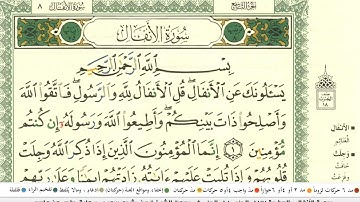 ٨ سورة الأنفال
الجزء التاسع
سُورَةُ الأَنفَالِ
بِسْمِ اللَّهِ الرَّحْمَٰنِ الرَّحِيمِ
يَسْـَٔلُونَكَ عَنِ الْأَنفَالِ ۖ قُلِ الْأَنفَالُ لِلَّهِ وَالرَّسُولِ ۖ فَاتَّقُوا اللَّهَ
وَأَصْلِحُوا ذَاتَ بَيْنِكُمْ ۖ وَأَطِيعُوا اللَّهَ وَرَسُولَهُ إِن كُنتُم
مُّؤْمِنِينَ ١ إِنَّمَا الْمُؤْمِنُونَ الَّذِينَ إِذَا ذُكِرَ اللَّهُ وَجِلَتْ
قُلُوبُهُمْ وَإِذَا تُلِيَتْ عَلَيْهِمْ ءَايَٰتُهُ زَادَتْهُمْ إِيمَٰنًا وَعَلَىٰ رَبِّهِمْ
الأنفال
الغنائم
وجلت